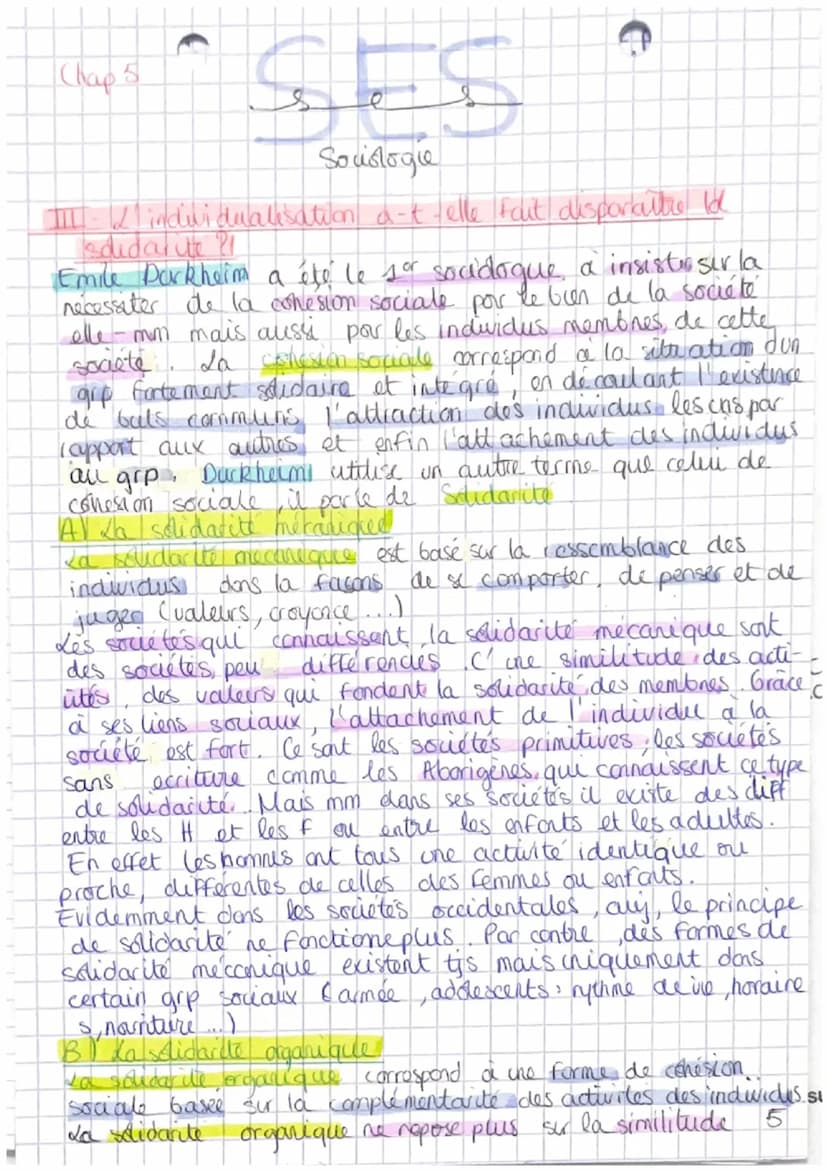 Chap 5
SES
s e s
Sociologie
III - L'individualisation a-t-elle fait disparaître la
solidarité ?
Emile Durkheim a été le 1er sociologue à insister sur la
necessiter de la cohesion sociale por le bien de la société
elle-mm mais aussi por les individus membres, de cette
société. La cohésion sociale correspond à la situation d'un
grp fortement solidaire et intégré, en découlant l'existence
de buts communs, l'attraction des individus les uns par
rapport aux autres et enfin l'attachement des individus
au grp. Durkheim utilise un autre terme que celui de
cohésion sociale, il parle de Solidarité
A) La solidarité mécanique
La solidarité mécanique est basé sur la ressemblance des
individus dans la façons de se comporter, de penser et de
juger (valeurs, croyance ...)
Les sociétés qui connaissent la solidarité mécanique sont
des sociétés peu différencies. C' une similitude des acti-
vités, des valeurs qui fondent la solidarité des membres. Grâce
à ses liens sociaux, l'attachement de l'individu à la
société est fort. Ce sont les sociétés primitives, les sociétés
sans ecriture comme les Aborigènes, qui connaissent ce type
de solidarité. Mais mm dans ses sociétés il existe des diff
entre les H et les f ou entre les enfants et les adultes.
En effet les hommes ont tous une activité identique ou
proche, différentes de celles des femmes ou enfants.
Evidemment dans les sociétés occidentales, auj, le principe
de solidarité ne fonctione plus. Par contre, des formes de
solidarité mécanique existent tjs mais uniquement dans
certain grp sociaux (armée, adolescents: rythme de vie, horaire
s, nourriture ...)
B) La solidarité organique
La solidarité organique correspond à une forme de cohésion
sociale basée sur la complémentarité des activités des individus.
La solidarité organique ne repose plus sur la similitude 5